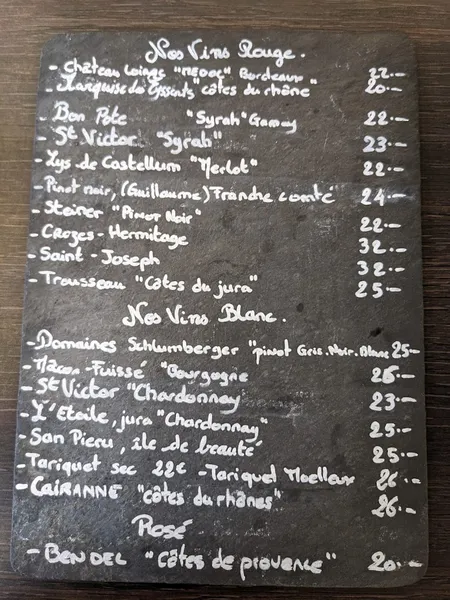 Nos Vins Rouge.
- Château "MEDOC" Bordeaux" 22.--
- Marquise des "côtes du rhône" 20.--
Bon Pote "Syrah" Gamay 22.--
St Victor "Syrah" 23.--
- Lys de Castellum "Merlot" 22.--
- Pinot noir, (Guillaume) Franche comté 24.--
- Steiner "Pinot Noir" 22.--
- Crozes-Hermitage 32.--
- Saint-Joseph 32.--
- Trousseau "Côtes du jura" 25.--
Nos Vins Blanc.
- Domaines Schlumberger "pinot Gris.Noir.Blanc 25--
- Macon-Fuissé "Bourgogne 26.--
- St Victor "Chardonnay 23.--
- L'Etoile, jura "Chardonnay" 25.--
- San Pieru, île de beauté 25.--
- Tariquet sec 22€ - Tariquet Moelleux 26.--
- CAIRANNE "côtes du rhônes" 26.--
Rosé
- BENDEL "Côtes de provence" 20.--